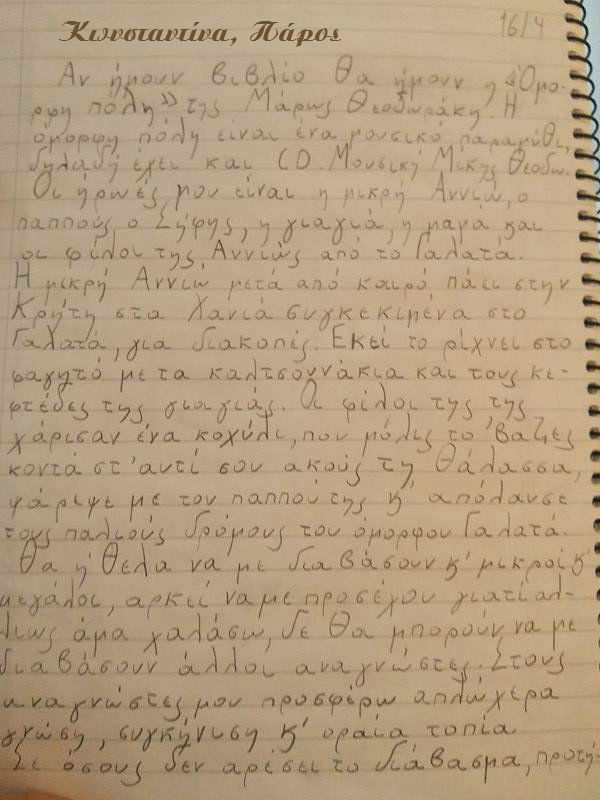 Κωνσταντίνα, Πάρος
16/4
Αν ήμουν βιβλίο θα ήμουν η «Όμο-
ρφη πόλη» της Μάρως Θεοδωράκη. Η
όμορφη πόλη είναι ένα μουσικό παραμύθι,
δηλαδή έχει και CD. Μουσική Μίκης Θεοδω.
Οι ήρωές μου είναι η μικρή Αννιώ, ο
παππούς ο Σήφης, η γιαγιά, η μαμά και
οι φίλοι της Αννιώς από το Γαλατά.
Η μικρή Αννιω μετά από καιρό πάει στην
Κρήτη στα Χανιά συγκεκιμένα στο
Γαλατά, για διακοπές. Εκεί το ρίχνει στο
φαγητό με τα καλτσουνάκια και τους κε-
φτέδες της γιαγιάς. Οι φίλοι της της
χάρισαν ένα κοχύλι, που μόλις το 'βαζες
κοντά στ' αυτί σου ακούς τη θάλασσα,
ψάρεψε με τον παππού της κ' απόλαυσε
τους παλιούς δρόμους του όμορφου Γαλατά.
Θα ή θελα να με διαβάσουν κ' μικροί κ'
μεγάλοι, αρκεί να με προσέχου γιατί αλ-
λιως άμα χαλάσω, δε θα μπορούν να με
διαβάσουν άλλοι αναγνώστες. Στους
αναγνώστες μου προσφέρω απλώχερα
γνώση, συγκήνιση κ' οραία τοπία
Σε όσους δεν αρέσει το διάβασμα, προτή-